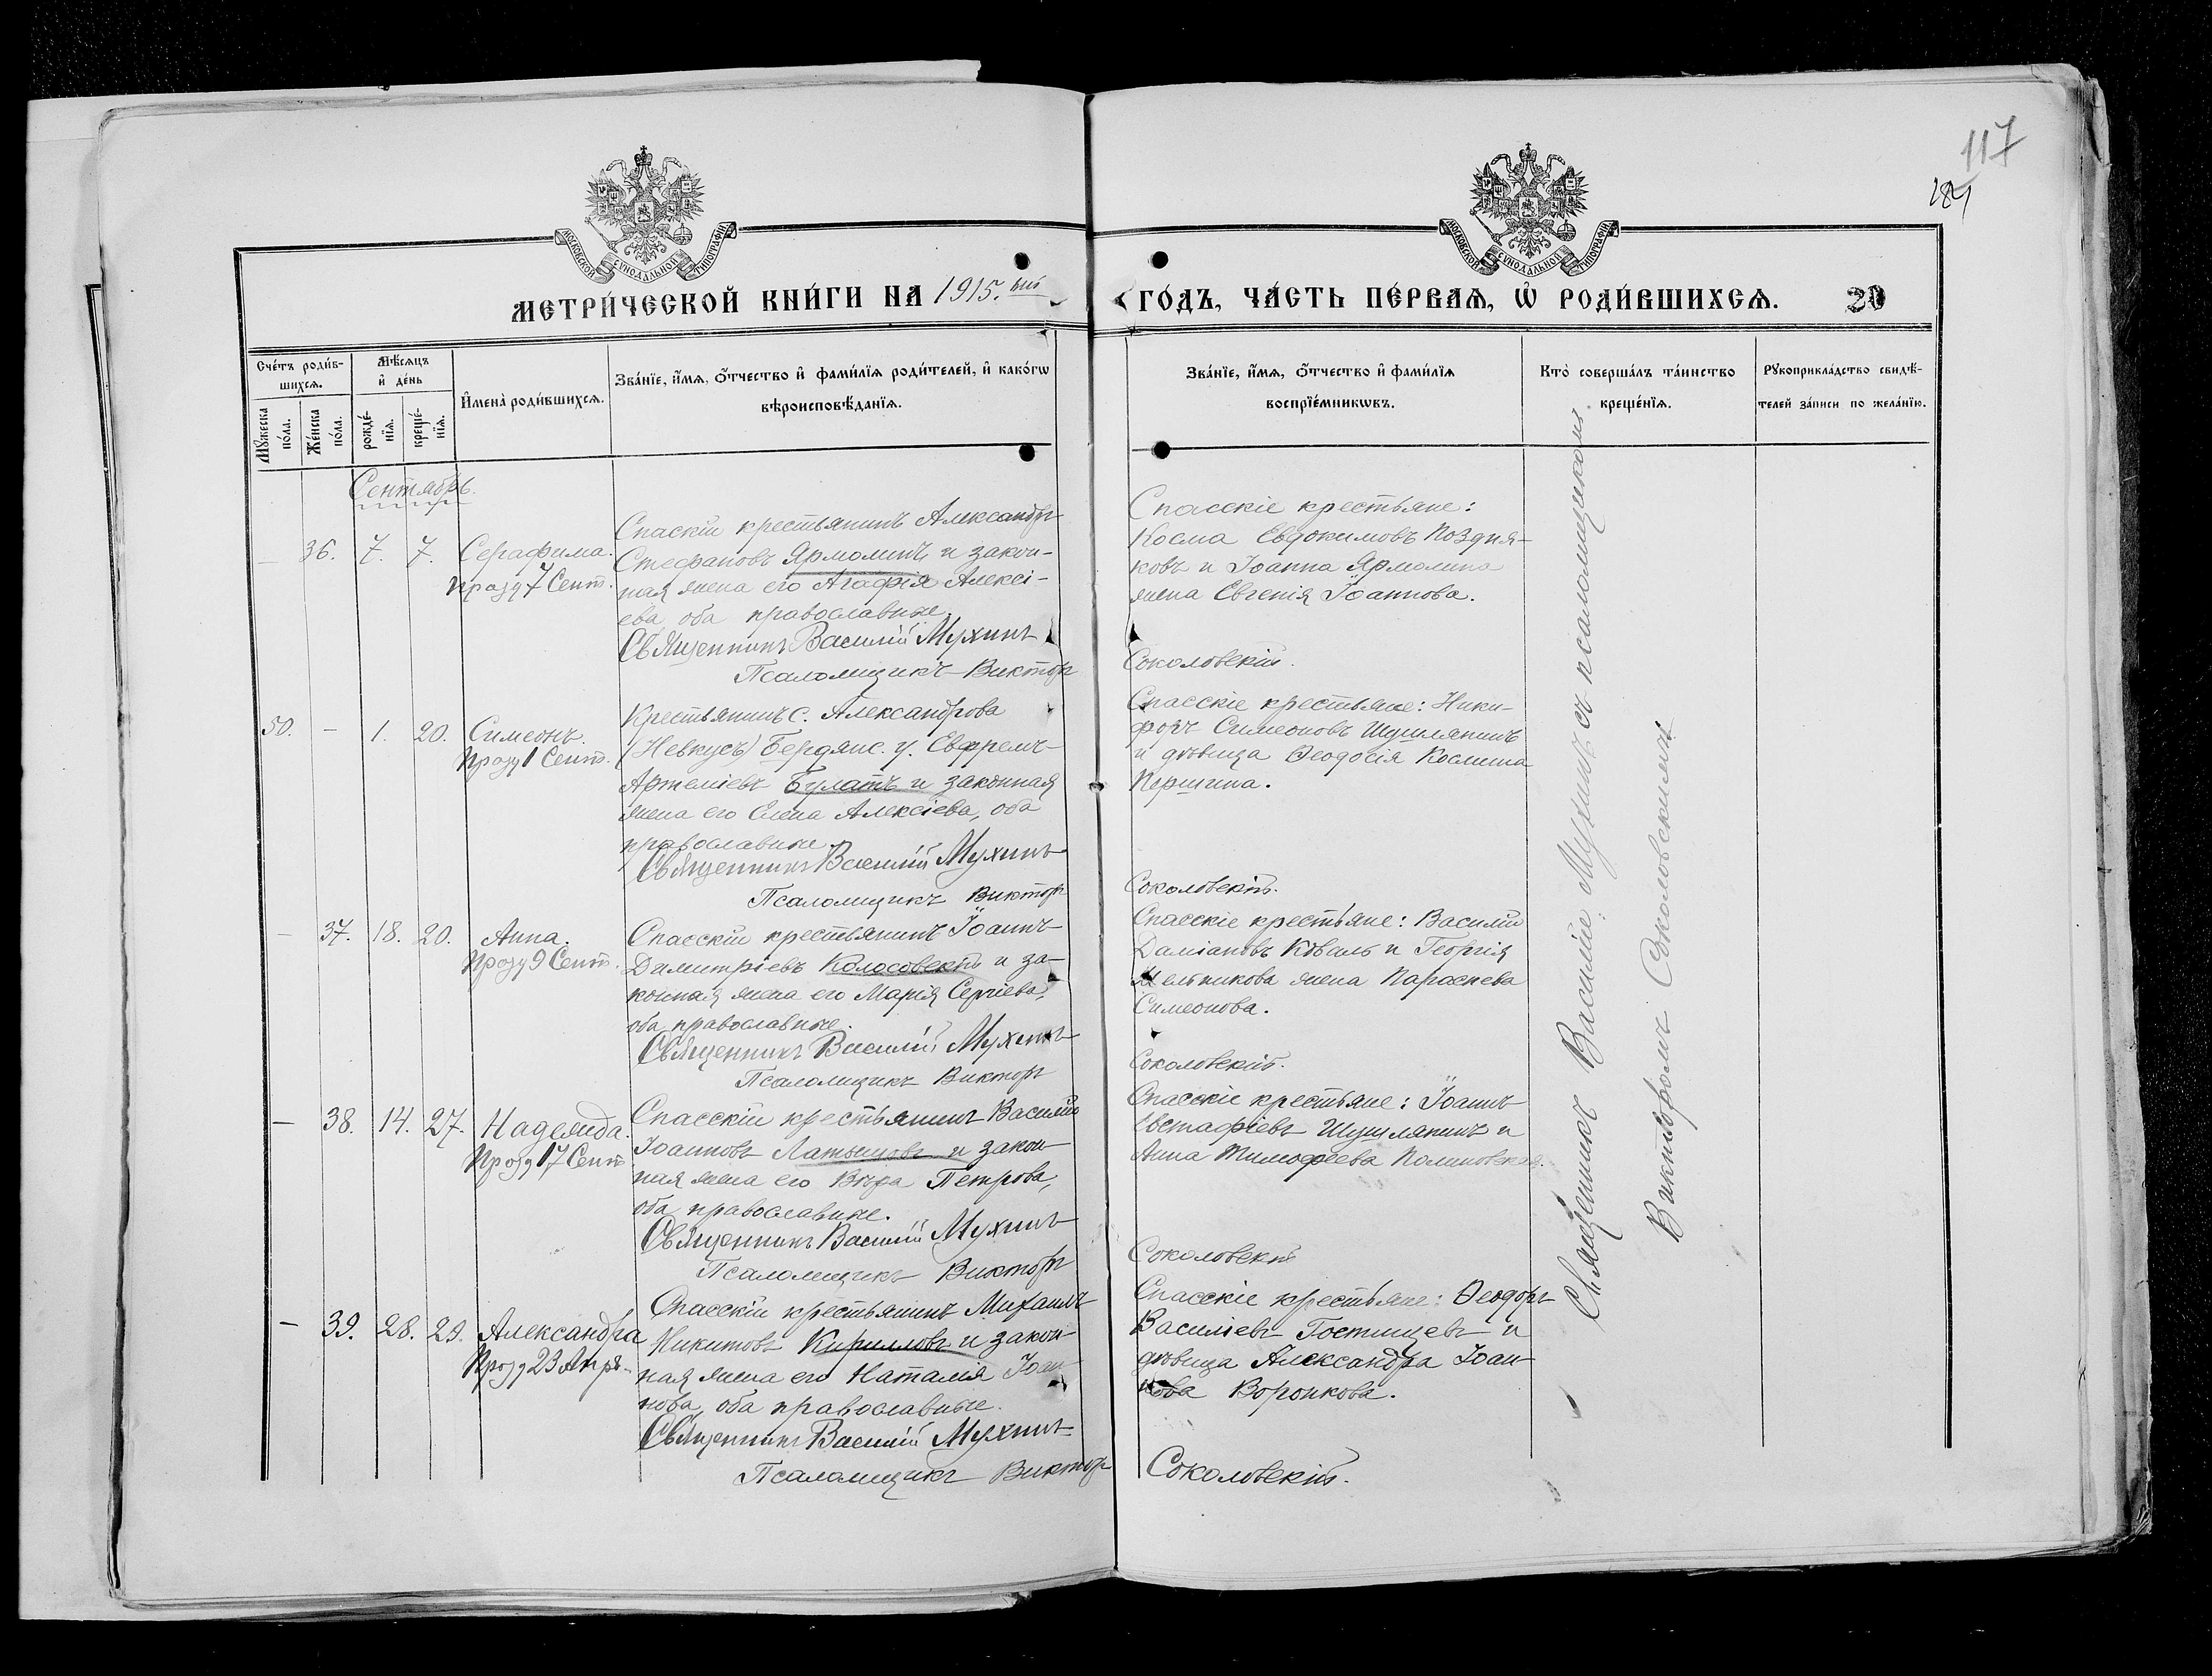 117
184
МОСКОВСКОЙ СѴНОДАЛЬНОЙ ТИПОГРАФІИ
МОСКОВСКОЙ СѴНОДАЛЬНОЙ ТИПОГРАФІИ
МЕТРИ́ЧЕСКОЙ КНИ́ГИ НА 1915.ый
ГО́ДЪ, ЧА́СТЬ ПЕ́РВАѦ, Ѡ҆ РОДИ́ВШИХСѦ. 20
Сче́тъ роди́вшихсѧ.
Мꙋ́жеска по́ла.
Же́нска по́ла.
Мѣ́сѧцъ и҆ де́нь
рожде́нїѧ.
креще́нїѧ.
И҆мена̀ роди́вшихсѧ.
Зва́нїе, и҆́мѧ, ѻ҆́тчество и҆ фами́лїѧ роди́телей, и҆ како́гѡ
вѣроисповѣ́данїѧ.
Зва́нїе, и҆́мѧ, ѻ҆́тчество и҆ фами́лїѧ
воспрїе́мникѡвъ.
Кто̀ соверша́лъ та́инство
креще́нїѧ.
Рꙋкоприкла́дство свидѣ́-
телей за́писи по жела́нїю.
Сентябрь.
— 36. 7. 7. Серафима.
празд 7 Сент.
Спаскій крестьянинъ Александръ
Стефановъ Ярмолинъ и закон-
ная жена его Агафія Алексі-
ева, оба православные.
Священникъ Василій Мухинъ
Псаломщикъ Викторъ
Спасскіе крестьяне:
Косма Евдокимовъ Поздня-
ковъ и Іоанна Ярмолина
жена Евгенія Іоаннова.
Соколовскій.
50. — 1. 20. Симеонъ.
Празд 1 Сент.
Крестьянинъ с. Александрова
(Невкусъ) Бердянс. у. Ефремъ
Артеміевъ Булатъ и законная
жена его Елена Алексіева, оба
православные.
Священникъ Василій Мухинъ
Псаломщикъ Викторъ
Спасскіе крестьяне: Ники-
форъ Симеоновъ Шушлянинъ
и дѣвица Ѳеодосія Космина
Першина.
Соколовскій.
— 37. 18. 20. Анна.
Празд 9 Сент.
Спасскій крестьянинъ Іоаннъ
Димитріевъ Колосовскій и за-
конная жена его Марія Сергіева,
оба православные.
Священникъ Василій Мухинъ
Псаломщикъ Викторъ
Спасскіе крестьяне: Василій
Даміановъ Коваль и Георгія
Мельникова жена Параскева
Симеонова.
Соколовскій.
— 38. 14. 27. Надежда.
Празд 17 Сент
Спасскій крестьянинъ Василій
Іоанновъ Латышовъ и закон-
ная жена его Вѣра Петрова,
оба православные.
Священникъ Василій Мухинъ
Псаломщикъ Викторъ
Спасскіе крестьяне: Іоаннъ
Евстафіевъ Шушлянинъ и
Анна Тимофеева Полиновская.
Соколовскій
— 39. 28. 29. Александра
Празд 23 Апрѣ.
Спасскій крестьянинъ Михаилъ
Никитовъ Кирилловъ и закон-
ная жена его Наталія Іоан-
нова, оба православные.
Священникъ Василій Мухинъ
Псаломщикъ Викторъ
Спасскіе крестьяне: Ѳеодоръ
Василіевъ Гостищевъ и
дѣвица Александра Іоан-
нова Воронкова.
Соколовскій.
Священникъ Василій Мухинъ съ псаломщикомъ
Викторомъ Соколовскимъ